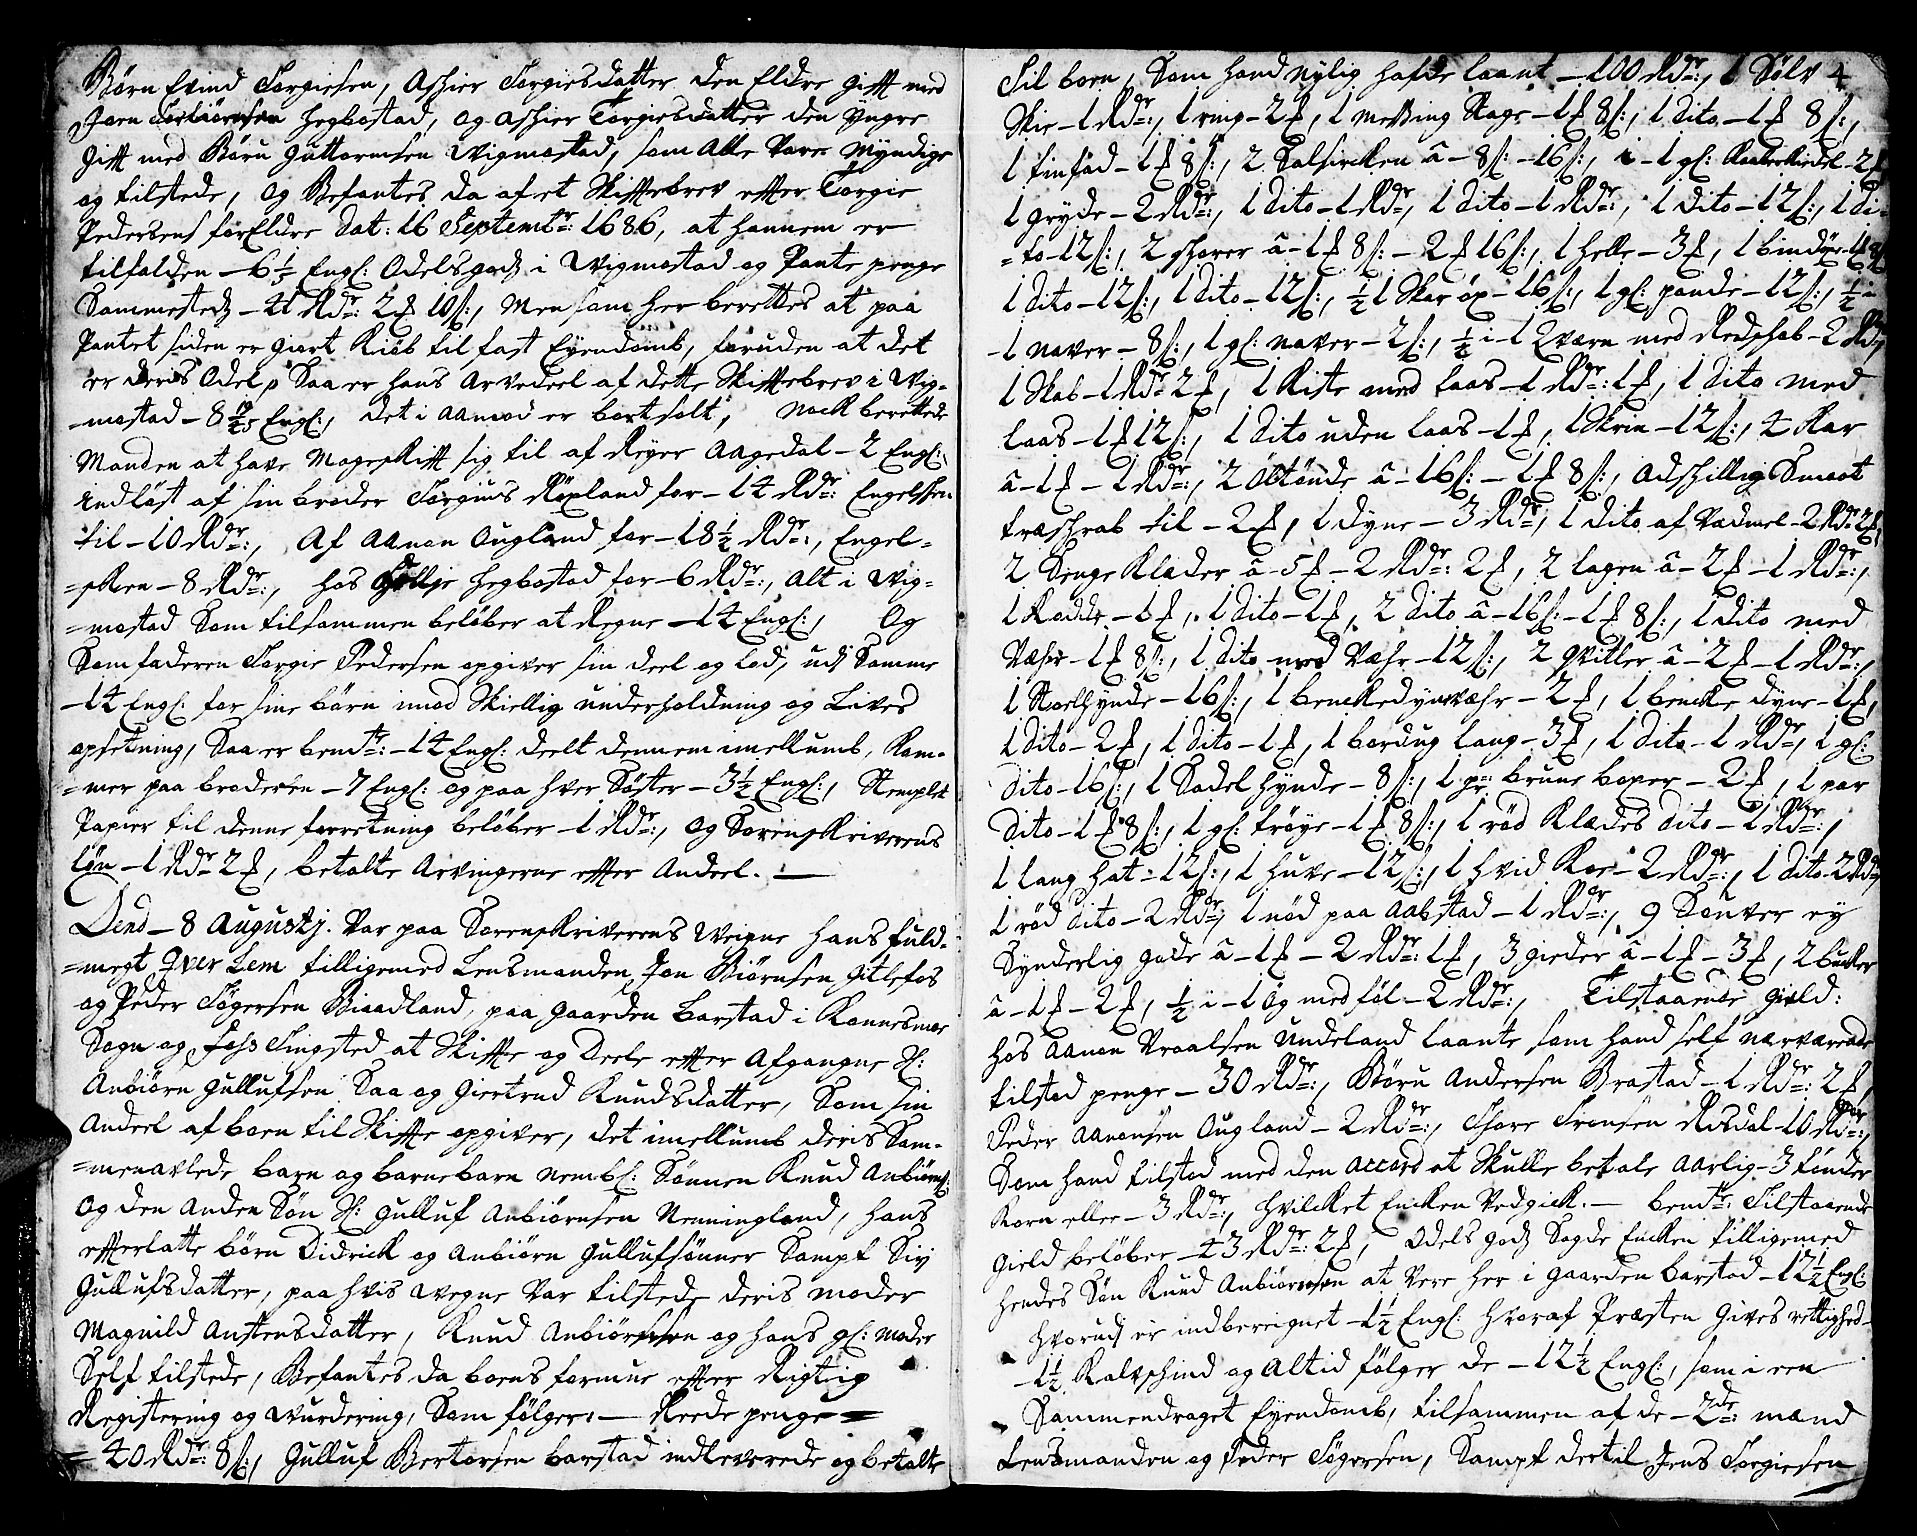 Børn Evind Torgiesen, Ashier Torgiesdatter den Eldre gifft med
Joen Torbiörnsen Hegbostad, og Ashier Torgiesdatter den Yngre
Gifft med Böru Guttormsen Wigmostad, som alle vare Myndige
og tilstede, og Befantes da af et Skifftebrev effter Torgie
Pedersens forEldre dat: 16 Septembr: 1686, at hannem er
tilfalden - 6 Engl: Odelsgodz i Wigmostad og Pante penge
Sammestedz - 41 Rdr: 2 £ 10 s:, Men som her berettes at paa
Pantet siden er giort Kiöb til fast Eyendomb, foruden at det
er deris Odel, Saa er hans Arvedeel af dette Skifftebrev i Wig-
=mostad - 8 Engl:, det i aamod er bortsolt, nock berettede
Manden at have Mageskifft sig til af Reyer Aagedal - 2 Engl:,
indlöst af sin broder Torgius Röxland for - 14 Rdr: Engelsken
til - 10 Rdr:, Af Aanon Ougland for - 18½ Rdr:, Engel=
=sken - 8 Rdr:, hos Hegbostad for - 6 Rdr:, alt i Wig-
=mostad Som tilsammen beløber at Regne - 14 Engl:, Og
Som faderen Torgie Pedersen opgiver sin deel og lod, udj Samme
- 14 Engl: for sine börn imod Skiellig underholdning og Lives
opfetning, Saa er bemte: - 14 Engl: deelt dennem imellumb, Kom-
=mer paa broderen - 7 Engl: og paa hver Söster - 3½ Engl:, Stemplet
Papier til denne forretning beløber - 1 Rdr:, og Sorenskriverens
lön - 1 Rdr 2 £, betalte Arvingerne effter Andeel. —
Dend - 8 Augustj. Var paa Sorenskriverens Weigne hans fuld-
=megt Iver Lem tilligemed Lensmanden Jon Biörnsen Gitlefos
og Peder Tögersen Biaadland, paa gaarden Barstad i
Sogn og Tingsted at Skiffte og Deele effter Afgangne Sl:
Anbiörn Gullufsen Saa og Giertrud Knudsdatter, Som sin
Andeel af boen til Skiffte opgiver, det imellumb deris Sam-
=menavlede barn og barnebarn nembl: Sønnen Knud Anbiörns:
og den Anden Søn Sl: Gulluf Anbiörnsen Nenningland, hans
effterlatte börn Didrick og Anbiörn Gullufsönner Sampt Siv
Gullufsdatter, paa hvis Wegne Var tilstede deris moder
Magnild Austensdatter, Knud Anbiörnsen og hans gl: moder
Self tilstede, Befantes da boens formue effter Rigtig
Registering og Wurdering, Som fölger: — Reede penge =
= 40 Rdr: 8 s:, Gulluf Bertorsen Barstad indleverede og betalte
Til boen, Som hand nylig hafde laant - 100 Rdr:, 1 Sölv 4
Skie - 1 Rdr:, 1 ring - 2 £, 1 messing Stage - 1 £ 8 s:, 1 dito - 1 £ 8 s:,
1 tinfad - 1 £ 8 s:, 2 Salsircken à - 8 s: - 16 s:, 1 gl: Kaaberkiedel - 2 £
1 gryde - 2 Rdr:, 1 dito - 1 Rdr, 1 dito - 1 Rdr:, 1 dito - 12 s:, 1 di-
=to - 12 s:, 2 shorer à - 1 £ 8 s: - 2 £ 16 s:, 1 helle - 3 £, 1 bindöxe 1 £ 8 s
1 dito - 12 s:, 1 dito - 12 s:, ½ 1 Skar öx - 16 s:, 1 gl: pande - 12 s:, ½ i
- 1 naver - 8 s:, 1 gl: naver - 2 s:, ½ i - 1 Qværn med Redshab - 2 Rdr
1 Skab - 1 Rdr 2 £, 1 Kiste med laas - 1 Rdr: 1 £, 1 dito med
laas - 1 £ 12 s:, 1 dito uden laas - 1 £, 1 Skrin - 12 s:, 4 Kar
à - 1 £ - 1 Rdr:, 2 Öltönde à - 16 s: - 1 £ 8 s:, adskillig Smaat
træshrab til - 2 £, 1 dyne - 3 Rdr:, 1 dito af Vadmel - 2 Rdr: 2 £,
2 Senge Klæder à - 5 £ - 2 Rdr: 2 £, 2 lagen à - 2 £ - 1 Rdr:,
1 Kodde - 1 £, 1 dito - 1 £, 2 dito à - 16 s: - 1 £ 8 s:, 1 dito med
Væhr - 1 £ 8 s:, 1 dito med Væhr - 12 s:, 2 Qvitler à - 2 £ - 1 Rdr:,
1 Stoelhynde - 16 s:, 1 benckedynvæhr - 2 £, 1 bencke dyne - 1 £,
1 dito - 2 £, 1 dito - 1 £, 1 bordug lang - 3 £, 1 dito - 1 Rdr:, 1 gl:
dito - 16 s:, 1 Sadel hynde - 8 s:, 1 pr: brune boxer - 2 £, 1 par
dito - 1 £ 8 s:, 1 gl: tröye - 1 £ 8 s:, 1 röd Klædes dito - 1 Rdr:,
1 lang hat - 12 s:, 1 huve - 12 s:, 1 hvid Koe - 2 Rdr:, 1 dito - 2 Rdr
1 röd dito - 2 Rdr, 1 nöd paa Aabstad - 1 Rdr:, 9 Souver ey
Synderlig gode à - 1 £ - 2 Rdr: 1 £, 3 gieder à - 1 £ - 3 £, 2 bucker
à - 1 £ - 2 £, ½ i - 1 Ög med föl - 2 Rdr:, Tilstaaende gield:
hos Aanon Vraalsen Undeland laante som hand self nærværende
tilstod penge - 30 Rdr:, Böru Andersen Brastad - 1 Rdr: 2 £,
Peder Aanonsen Ougland - 2 Rdr:, Thore Risdal - 10 Rdr:,
Som hand tilstod med den accord at Skulle betale aarlig - 3 tönder
Korn eller - 3 Rdr:, hvilcket Encken Vedgick. — bemte: Tilstaaende
Gield beløber - 43 Rdr: 2 £, Odels godz Sagde Encken tilligemed
hendes Søn Knud Anbiörnsen at Vere her i gaarden Barstad - 12½ Engl:
hvorudj er indbereignet - 1½ Engl: hvoraf Præsten Gives rettighed
- 1½ Kalvshind og altid fölger de - 12½ Engl:, som i een
Sammendraget Eyendomb, tilsammen af de - 2de: mænd
Lensmanden og Peder Tögersen, Sampt dertil Jens Torgiesen